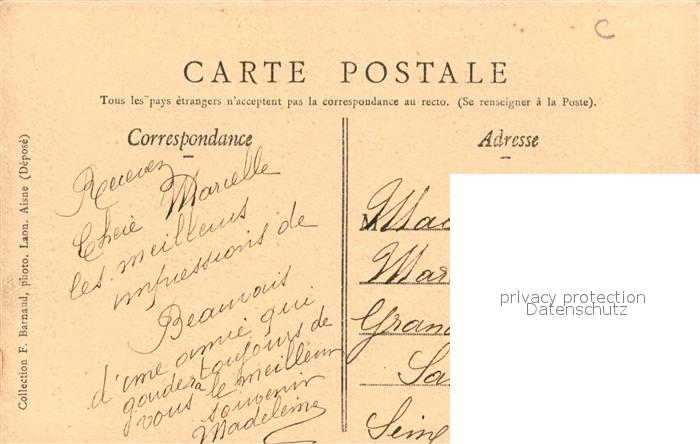 C
CARTE POSTALE
Tous les pays étrangers n'acceptent pas la correspondance au recto. (Se renseigner à la Poste).
Correspondance
Recevez
Chère Marcelle
les meilleurs
impressions de
Beauvais
d'une amie qui
gardera toujours de
vous le meilleur
souvenir
Madeleine
Adresse
Mar
Grand
Seine
privacy protection
Datenschutz
Collection F. Barnaud, photo. Laon. Aisne (Déposé)